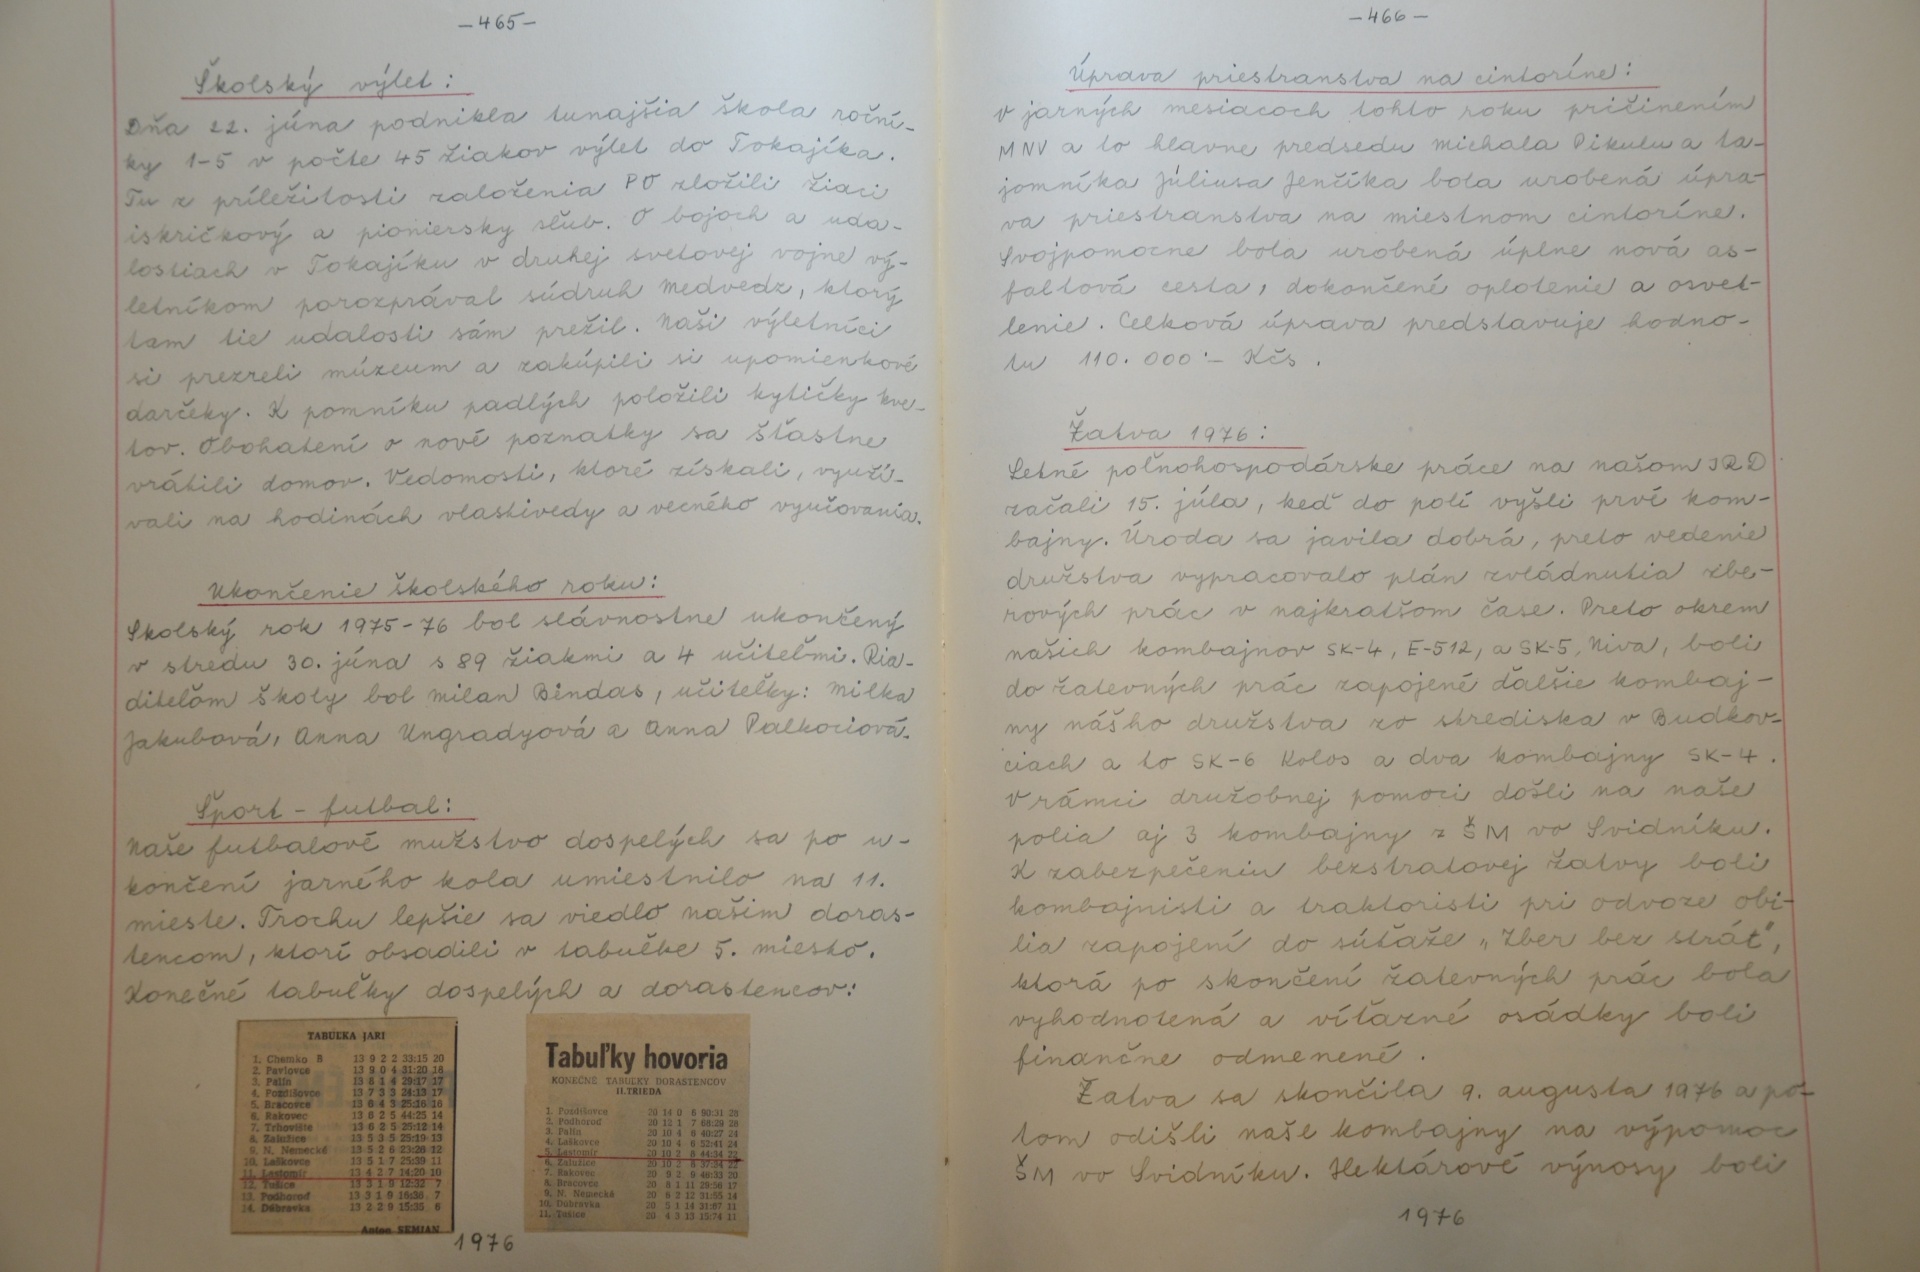 –465–
Školský výlet:
Dňa 22. júna podnikla tunajšia škola roční-
ky 1-5 v počte 45 žiakov výlet do Tokajíka.
Tu z príležitosti založenia PO zložili žiaci
iskričkový a pioniersky sľub. O bojoch a uda-
lostiach v Tokajíku v druhej svetovej vojne vý-
letníkom porozprával súdruh Medvedz, ktorý
tam tie udalosti sám prežil. Naši výletníci
si prezreli múzeum a zakúpili si upomienkové
darčeky. K pomníku padlých položili kytičky kve-
tov. Obohatení o nové poznatky sa šťastne
vrátili domov. Vedomosti, ktoré získali, využí-
vali na hodinách vlastivedy a vecného vyučovania.
Ukončenie školského roku:
Školský rok 1975-76 bol slávnostne ukončený
v stredu 30. júna s 89 žiakmi a 4 učiteľmi. Ria-
diteľom školy bol Milan Bindas, učiteľky: Milka
Jakubová, Anna Ungradyová a Anna Palkociová.
Šport – futbal:
Naše futbalové mužstvo dospelých sa po u-
končení jarného kola umiestnilo na 11.
mieste. Trochu lepšie sa viedlo našim doras-
tencom, ktorí obsadili v tabuľke 5. miesto.
Konečné tabuľky dospelých a dorastencov:
TABUĽKA JARI
1. Chemko B 13 9 2 2 33:15 20
2. Pavlovce 13 9 0 4 31:20 18
3. Palín 13 8 1 4 29:17 17
4. Pozdišovce 13 7 3 3 24:13 17
5. Bracovce 13 6 4 3 25:16 16
6. Rakovec 13 6 2 5 44:25 14
7. Trhovište 13 6 2 5 25:12 14
8. Zalužice 13 5 3 5 25:19 13
9. N. Nemecké 13 5 2 6 23:26 12
10. Laškovce 13 5 1 7 25:39 11
11. Lastomír 13 4 2 7 14:20 10
12. Tušice 13 3 1 9 12:32 7
13. Podhoroď 13 3 1 9 16:36 7
14. Dúbravka 13 2 2 9 15:35 6
Anton SEMJAN
Tabuľky hovoria
KONEČNÉ TABUĽKY DORASTENCOV
II. TRIEDA
1. Pozdišovce 20 14 0 6 90:31 28
2. Podhoroď 20 12 1 7 68:29 28
3. Palín 20 10 4 6 40:27 24
4. Laškovce 20 10 4 6 52:41 24
5. Lastomír 20 10 2 8 44:34 22
6. Zalužice 20 10 2 8 37:34 22
7. Rakovec 20 9 2 9 48:33 20
8. Bracovce 20 8 1 11 29:56 17
9. N. Nemecká 20 6 2 12 31:55 14
10. Dúbravka 20 5 1 14 31:67 11
11. Tušice 20 4 3 13 15:74 11
1976
–466–
Úprava priestranstva na cintoríne:
V jarných mesiacoch tohto roku pričinením
MNV a to hlavne predsedu Michala Pikulu a ta-
jomníka Júliusa Jenčíka bola urobená úpra-
va priestranstva na miestnom cintoríne.
Svojpomocne bola urobená úplne nová as-
faltová cesta, dokončené oplotenie a osvet-
lenie. Celková úprava predstavuje hodno-
tu 110.000·– Kčs.
Žatva 1976:
Letné poľnohospodárske práce na našom JRD
začali 15. júla, keď do polí vyšli prvé kom-
bajny. Úroda sa javila dobrá, preto vedenie
družstva vypracovalo plán zvládnutia zbe-
rových prác v najkratšom čase. Preto okrem
našich kombajnov SK-4, E-512, a SK-5, Niva, boli
do žatevných prác zapojené ďalšie kombaj-
ny nášho družstva zo strediska v Budkov-
ciach a to SK-6 Kolos a dva kombajny SK-4.
V rámci družobnej pomoci došli na naše
polia aj 3 kombajny z ŠM vo Svidníku.
K zabezpečeniu bezstratovej žatvy boli
kombajnisti a traktoristi pri odvoze obi-
lia zapojení do súťaže „Zber bez strát",
ktorá po skončení žatevných prác bola
vyhodnotená a víťazné osádky boli
finančne odmenené.
Žatva sa skončila 9. augusta 1976 a po-
tom odišli naše kombajny na výpomoc
ŠM vo Svidníku. Hektárové výnosy boli
1976